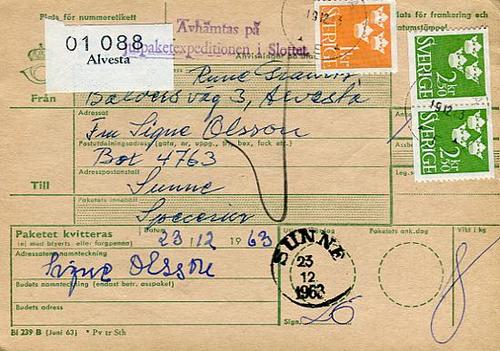 Plats för nummeretikett
Avhämtas på
Plats för frankering och
01 088
Alvesta
Julpaketexpeditionen i Slottet
19.12.3
1 kr
SVERIGE
2 kr 50
SVERIGE
19.12.3
2 kr 50
SVERIGE
Från
Rune
Balders väg 3, Alvesta
Adressat
Fru Signe Olsson
Postutdelningsadress (gata, nr, uppg., tr, box, fack etc.)
Box 4763
Adresspostanstalt
Till
Sunne
Paketets innehåll
Specerier
Paketet kvitteras
(ej med blyerts eller färgpenna)
Datum
23/12 1963
Paketets ank.dag
Vikt i kg
Adressatens namnteckning
Signe Olsson
SUNNE
23
12
1963
8
Budets namnteckning (endast betr. asspaket)
Budets adress
Sign.
Bl 239 B (Juni 63) * Pv tr Sth